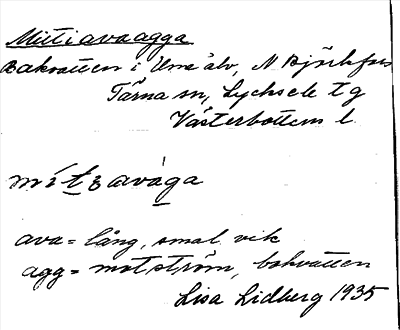 Mittiavaagga
Bakvatten i Ume älv, N Björkfors
Tärna sn, Lycksele tg
Västerbottens l.
mítsavàga
ava = lång, smal vik
agg = motström, bakvatten
Lisa Lidberg 1935